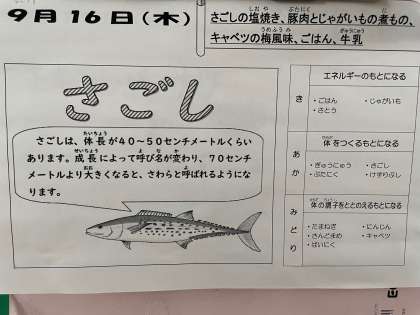 9月16日(木)
さごしの塩焼き、豚肉とじゃがいもの煮もの、
キャベツの梅風味、ごはん、牛乳
さごし
さごしは、体長が40～50センチメートルくらい
あります。成長によって呼び名が変わり、70センチ
メートルより大きくなると、さわらと呼ばれるようにな
ります。
エネルギーのもとになる
き
・ごはん ・じゃがいも
・さとう
体をつくるもとになる
あか
・ぎゅうにゅう ・さごし
・ぶたにく ・けずりぶし
体の調子をととのえるもとになる
みどり
・たまねぎ ・にんじん
・さんどまめ ・キャベツ
・ばいにく